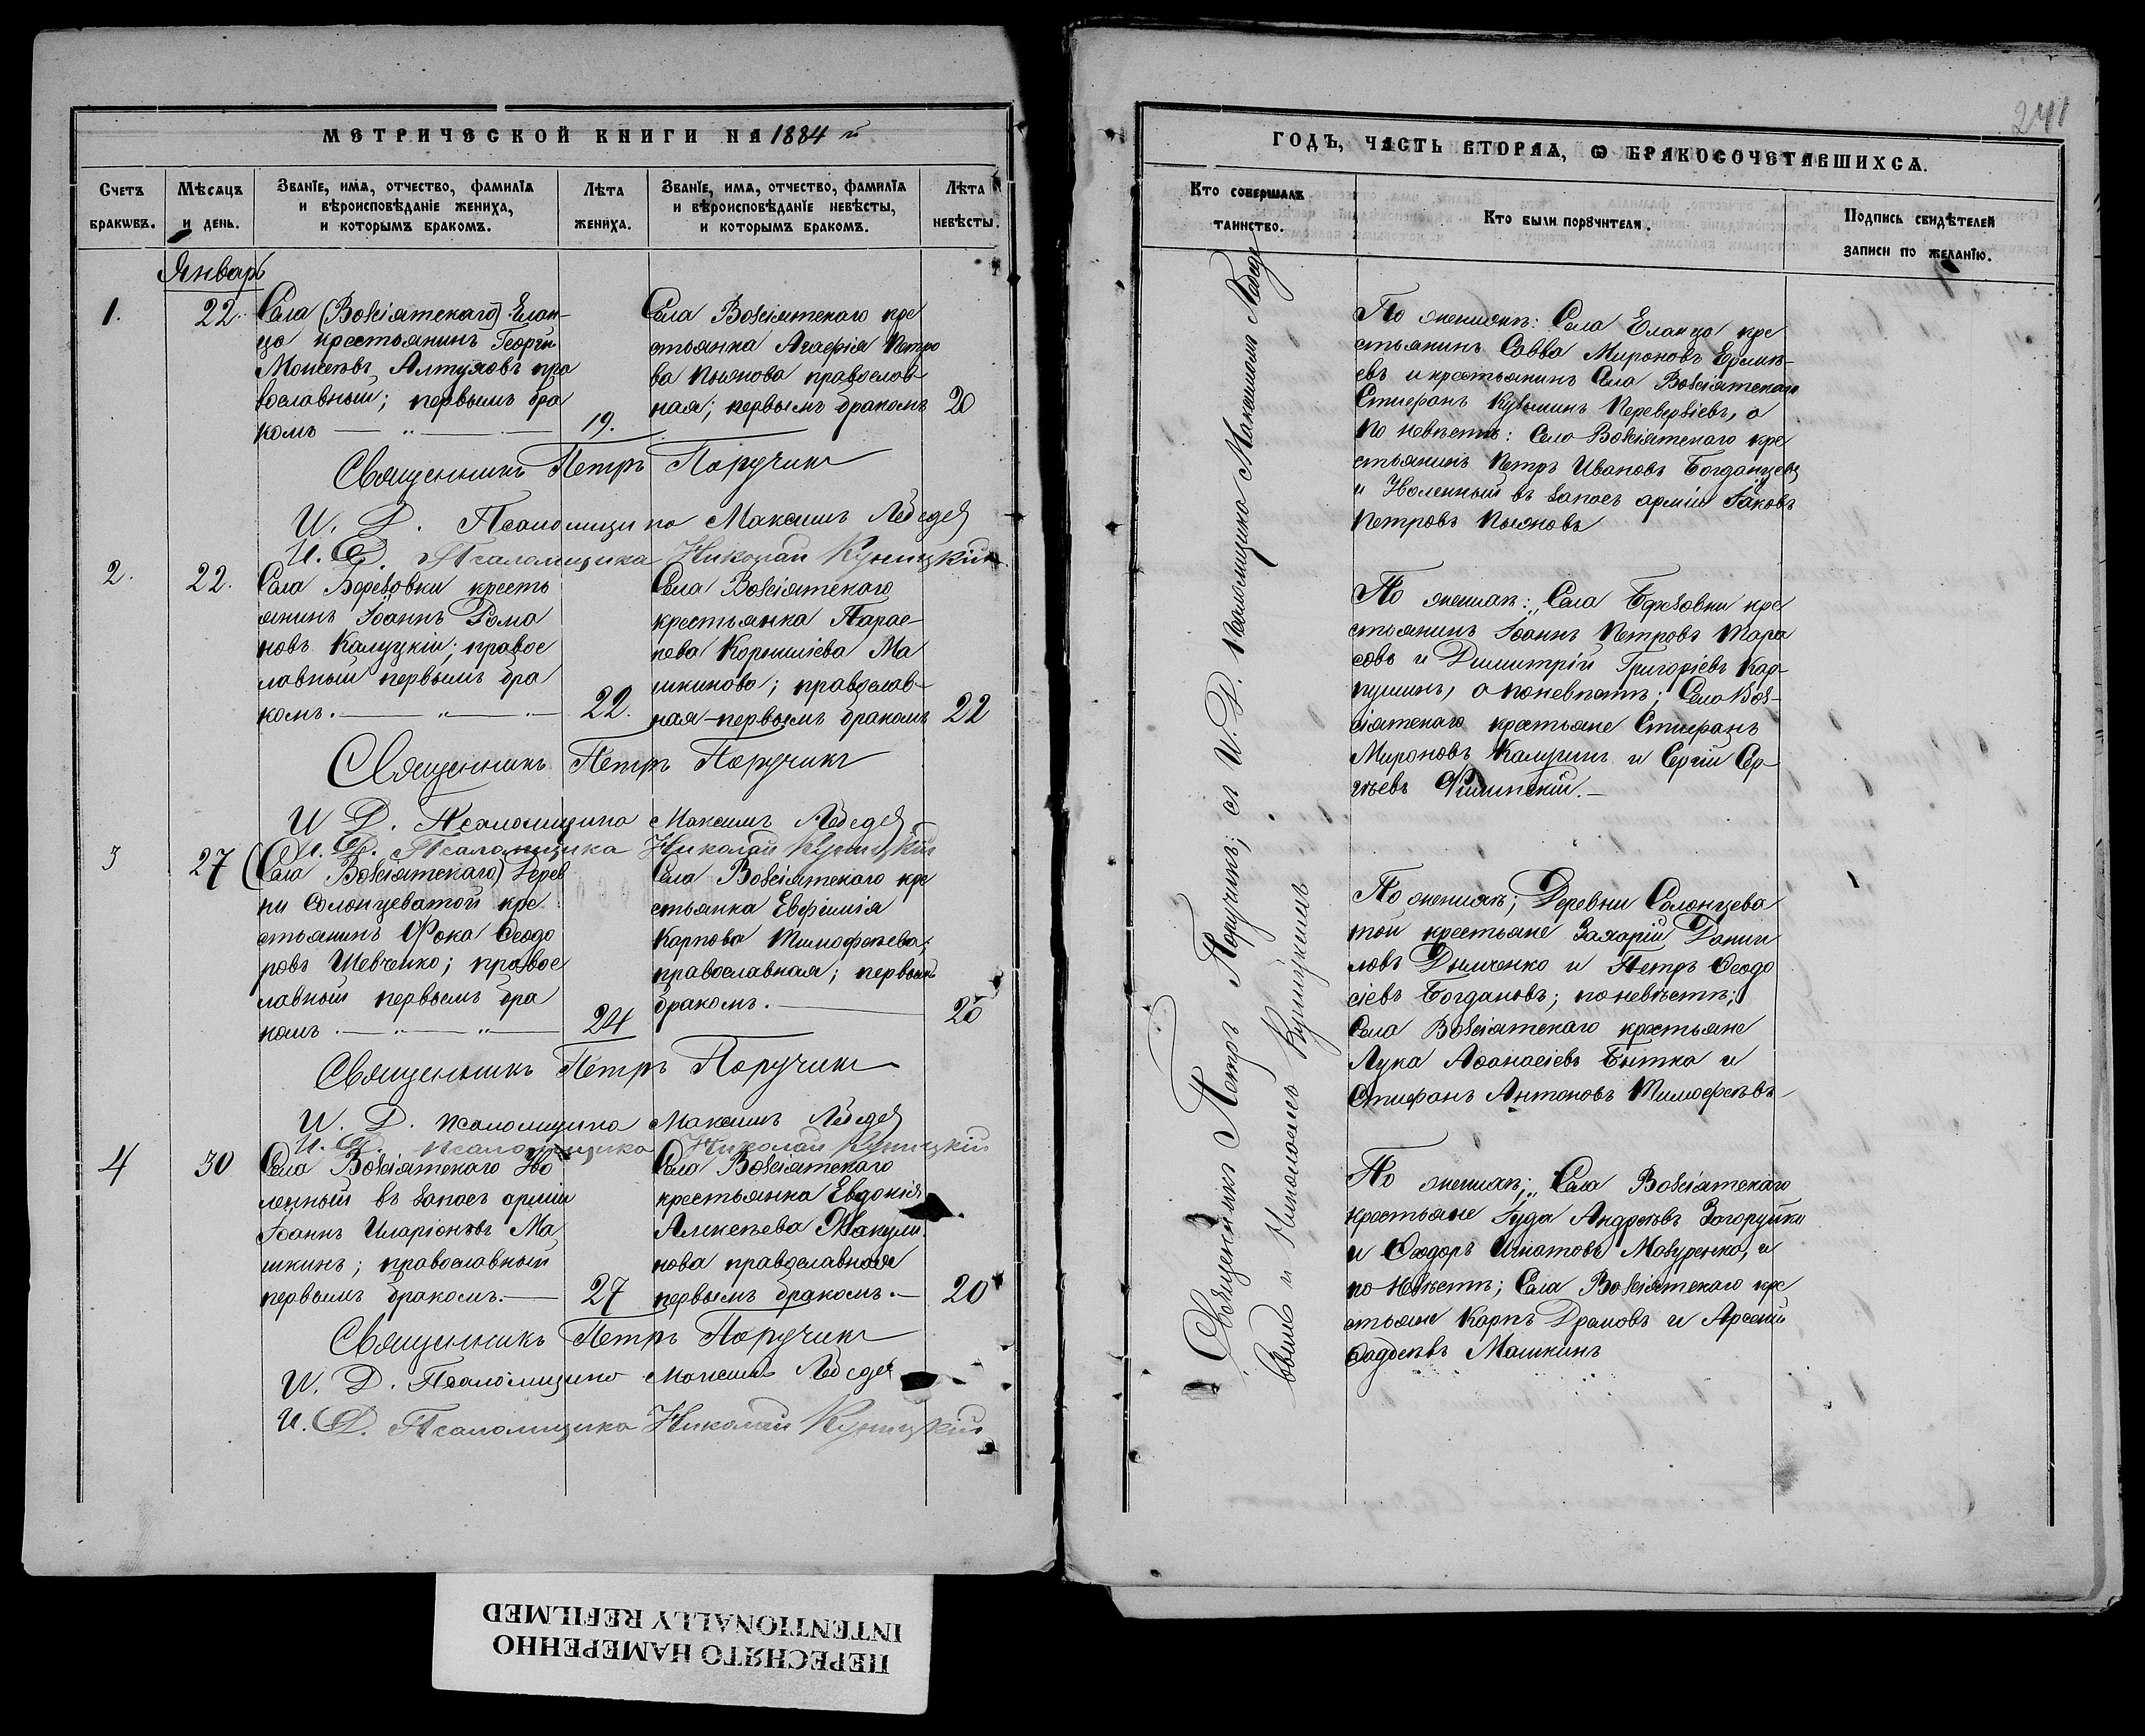 МЕТРИЧЕСКОЙ КНИГИ НА 1884 й
Счетъ браковъ.
Мѣсяцъ и день.
Званіе, имя, отчество, фамилія
и вѣроисповѣданіе жениха,
и которымъ бракомъ.
Лѣта жениха.
Званіе, имя, отчество, фамилія
и вѣроисповѣданіе невѣсты,
и которымъ бракомъ.
Лѣта невѣсты.
Январь
1.
22.
Села (Возсіятскаго) Елан-
ца крестьянинъ Георгій
Моисеѣвъ Алтуховъ пра
вославный; первымъ бра
комъ
19.
Села Возсіятскаго кре
стьянка Агафія Петро
ва Пьянова православ-
ная; первымъ бракомъ
20
Священникъ Петръ Поручик
И. Д. Псаломщика Максимъ Лебедев
И. Д. Псаломщика Николай Куницкій
2.
22.
Села Березовки кресть
янинъ Іоаннъ Рома
новъ Калуцкій; правос
лавный первымъ бра
комъ.
22.
Села Возсіятскаго
крестьянка Парас-
кева Корниліева Ма
шкинова; православ-
ная первымъ бракомъ
22
Священникъ Петръ Поручикъ
И Д. Псаломщика Максимъ Лебедев
И. Д. Псаломщика Николай Куницкій
3
27
(Села Возсіятскаго) Дерев
ни Солонцеватой кре
стьянинъ Фока Ѳеодо
ровъ Шевченко; правос
лавный первымъ бра
комъ.
24
Села Возсіятскаго кре
стьянка Евфимія
Карпова Тимофеева;
православная; первымъ
бракомъ.
20
Священникъ Петръ Поручик
И. Д. псаломщика Максимъ Лебедев
И. Д. псаломщика Николай Куницкій
4
30
Села Возсіятскаго Уво
ленный въ запасъ арміи
Іоаннъ Иларіоновъ Ма
шкинъ; православный
первымъ бракомъ.
27
Села Возсіятскаго
крестьянка Евдокія
Алексѣева
нова православная
первымъ бракомъ.
20
Священникъ Петръ Поручик
И. Д. Псаломщика Максимъ Лебедев
И. Д. Псаломщика Николай Куницкій
241
ГОДЪ, ЧАСТЬ ВТОРАЯ, Ѡ БРАКОСОЧЕТАВШИХСЯ.
Кто совершалъ таинство.
Кто были поручители.
Подпись свидѣтелей
записи по желанію.
Священникъ Петръ Поручикъ; съ И. Д. псаломщика Максимомъ Лебеде
вымъ и Николаемъ Куницкимъ
По женихѣ: Села Еланца кре
стьянинъ Савва Мироновъ
евъ и крестьянинъ Села Возсіятскаго
Стефанъ Кузьминъ Переверзіевъ, а
по невѣстѣ: Села Возсіятскаго кре
стьянинъ Петръ Ивановъ Богданцевъ
и Уволенный въ запасъ арміи Іаковъ
Петровъ Пьяновъ
По женихѣ: Села Березовки кре
стьянинъ Іоаннъ Петровъ Тара
совъ и Димитрій Григоріевъ Кар-
пушинъ, а по невѣстѣ; Села Воз-
сіятскаго крестьяне Стефанъ
Мироновъ Калугинъ и Сергій Сер-
гѣевъ Филинскій.
По женихѣ; Деревни Солонцева
той крестьяне Захарій Данил
ловъ Дымченко и Петръ Ѳеодо
сіевъ Богдановъ; по невѣстѣ;
Села Возсіятскаго крестьяне
Лука Аѳанасіевъ Бытка и
Стефанъ Антоновъ Тимофеевъ
По женихѣ; Села Возсіятскаго
крестьяне Іуда Андреевъ Загоруйко
и Ѳеодоръ Игнатовъ Мазуренко, и
по невѣстѣ; Села Возсіятскаго кре
стьяне Карпъ Драмовъ и Арсеній
Ѳадѣевъ Машкинъ
ПЕРЕСНЯТО НАМЕРЕННО
INTENTIONALLY REFILMED